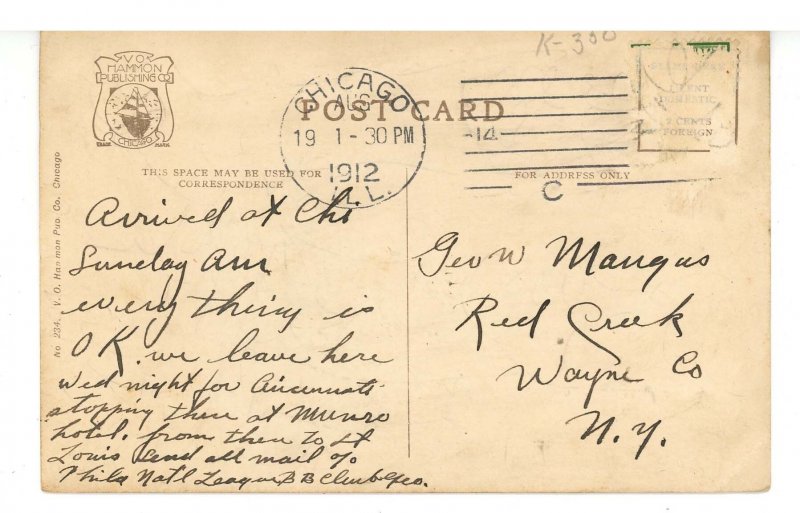 K-300
V.O.
HAMMON
PUBLISHING CO
CHICAGO
TRADE MARK
CHICAGO
AUG
19 1-30 PM
1912
ILL.
14
C
POST CARD
THIS SPACE MAY BE USED FOR
CORRESPONDENCE
FOR ADDRESS ONLY
1 CENT
DOMESTIC
2 CENTS
FOREIGN
No 234. V. O. Hammon Pub. Co., Chicago
Arrived at Chi
Sunday Am
every thing is
O K. we leave here
Wed night for Cincennati
stopping there at Munro
hotel. from there to St
Louis send all mail c/o
Phila Nat'l League B B Club Geo.
Geo W Mangus
Red Creek
Wayne Co
N.Y.